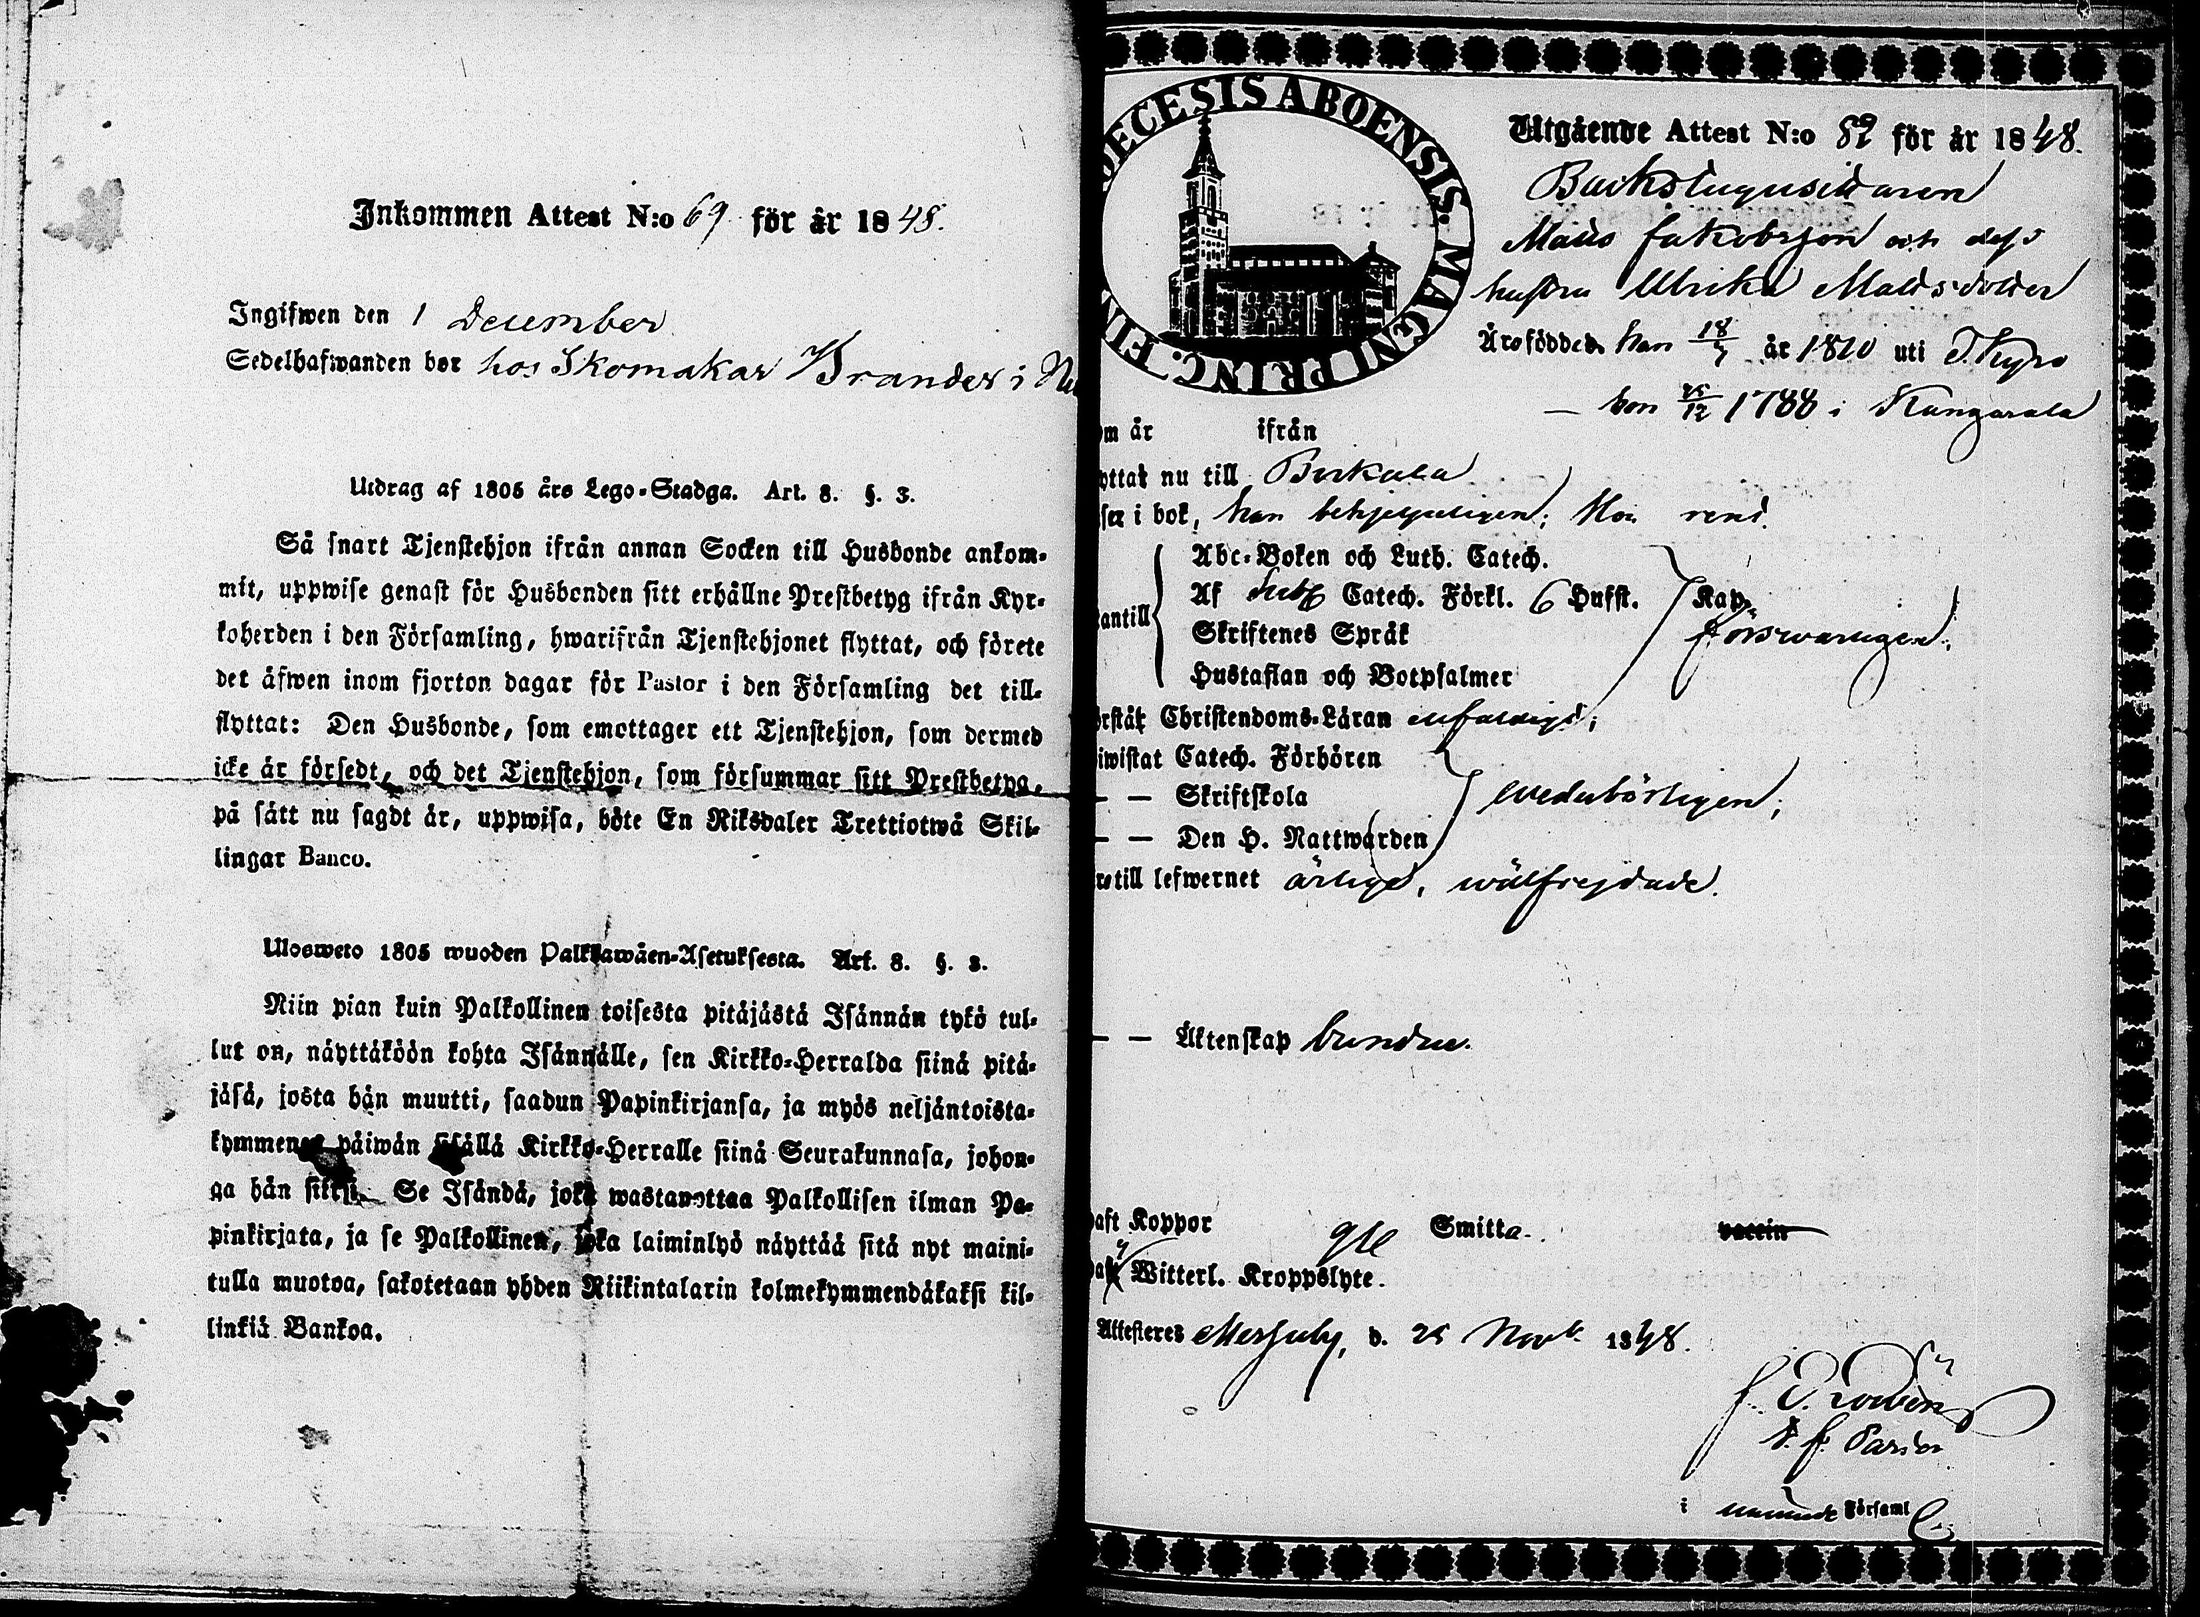 Inkommen Attest N:o 69 för år 1848.
Ingifwen den 1 December
Sedelhafwanden bor hos Skomakar Brander i
Utdrag af 1805 års Lego-Stadga. Art. 8. §. 3.
Så snart Tjenstehjon ifrån annan Socken till Husbonde ankom-
mit, uppwise genast för Husbonden sitt erhållne Prestbetyg ifrån Kyr-
koherden i den Församling, hwarifrån Tjenstehjonet flyttat, och förete
det äfwen inom fjorton dagar för Pastor i den Församling det till-
flyttat: Den Husbonde, som emottager ett Tjenstehjon, som dermed
icke är försedt, och det Tjenstehjon, som försummar sitt Prestbetyg,
på sätt nu sagdt är, uppwisa, böte En Riksdaler Trettiotwå Skil-
lingar Banco.
Ulosweto 1805 wuoden Palkkawäen-Asetuksesta. Art. 8. §. 3.
Niin pian kuin Palkollinen toisesta pitäjästä Isännän tykö tul-
lut on, näyttäköön kohta Isännälle, sen Kirkko-Herralda siinä pitä-
jäsä, josta hän muutti, saadun Papinkirjansa, ja myös neljäntoista-
kymmenen päiwän sisällä Kirkko-Herralle siinä Seurakunnasa, johon-
ga hän siirsi. Se Isändä, joka wastanottaa Palkollisen ilman Pa-
pinkirjata, ja se Palkollinen, joka laiminlyö näyttää sitä nyt maini-
tulla muotoa, sakotetaan yhden Riikintalarin kolmekymmendäkaksi kil-
linkiä Bankoa.
DECESIS ABOENSIS. MAGNI PRINC. FIN
Utgående Attest N:o 82 för år 1848.
Backstugusittaren
Matts Jakobsson och dess
hustru Ulrika Mattsdotter
Äro födde han 18/7 år 1810 uti T. Kyro
— hon 25/12 1788 i Kangasala
om är ifrån
yttat nu till Birkala
ser i bok, han behjelpeligen; Hon rent.
Abc-Boken och Luth. Catech.
Af Catech. Förkl. 6 Hufst.
antill Skriftenes Språk försvarligen;
Hustaflan och Botpsalmer
rstår Christendoms-Läran enfaldigt;
iwistat Catech. Förhören
— — Skriftskola wederbörligen;
— — Den H. Nattwarden
till lefwernet ärlige, wälfrejdade.
— — Äktenskap bundne.
aft Koppor Smitta. vaccin
Witterl. Kroppslyte.
Attesteres Messuby, d. 25 Novb. 1848.
i Församl